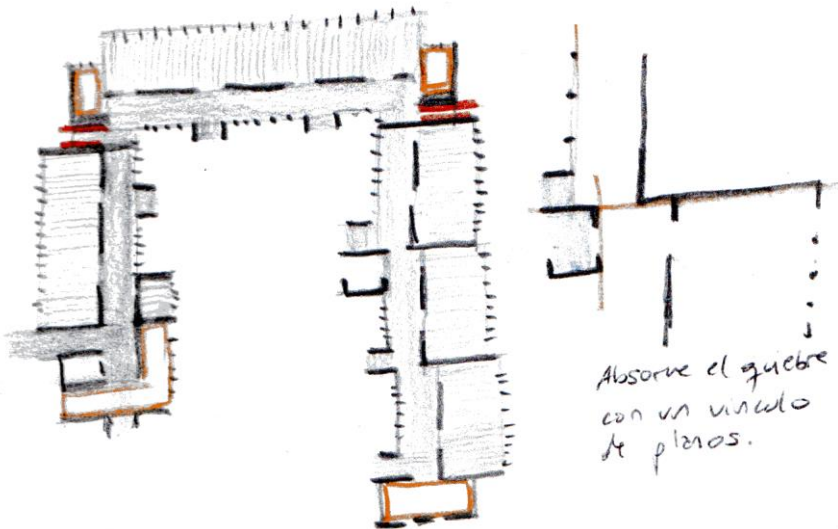 Absorve el quiebre
con un vinculo
de planos.